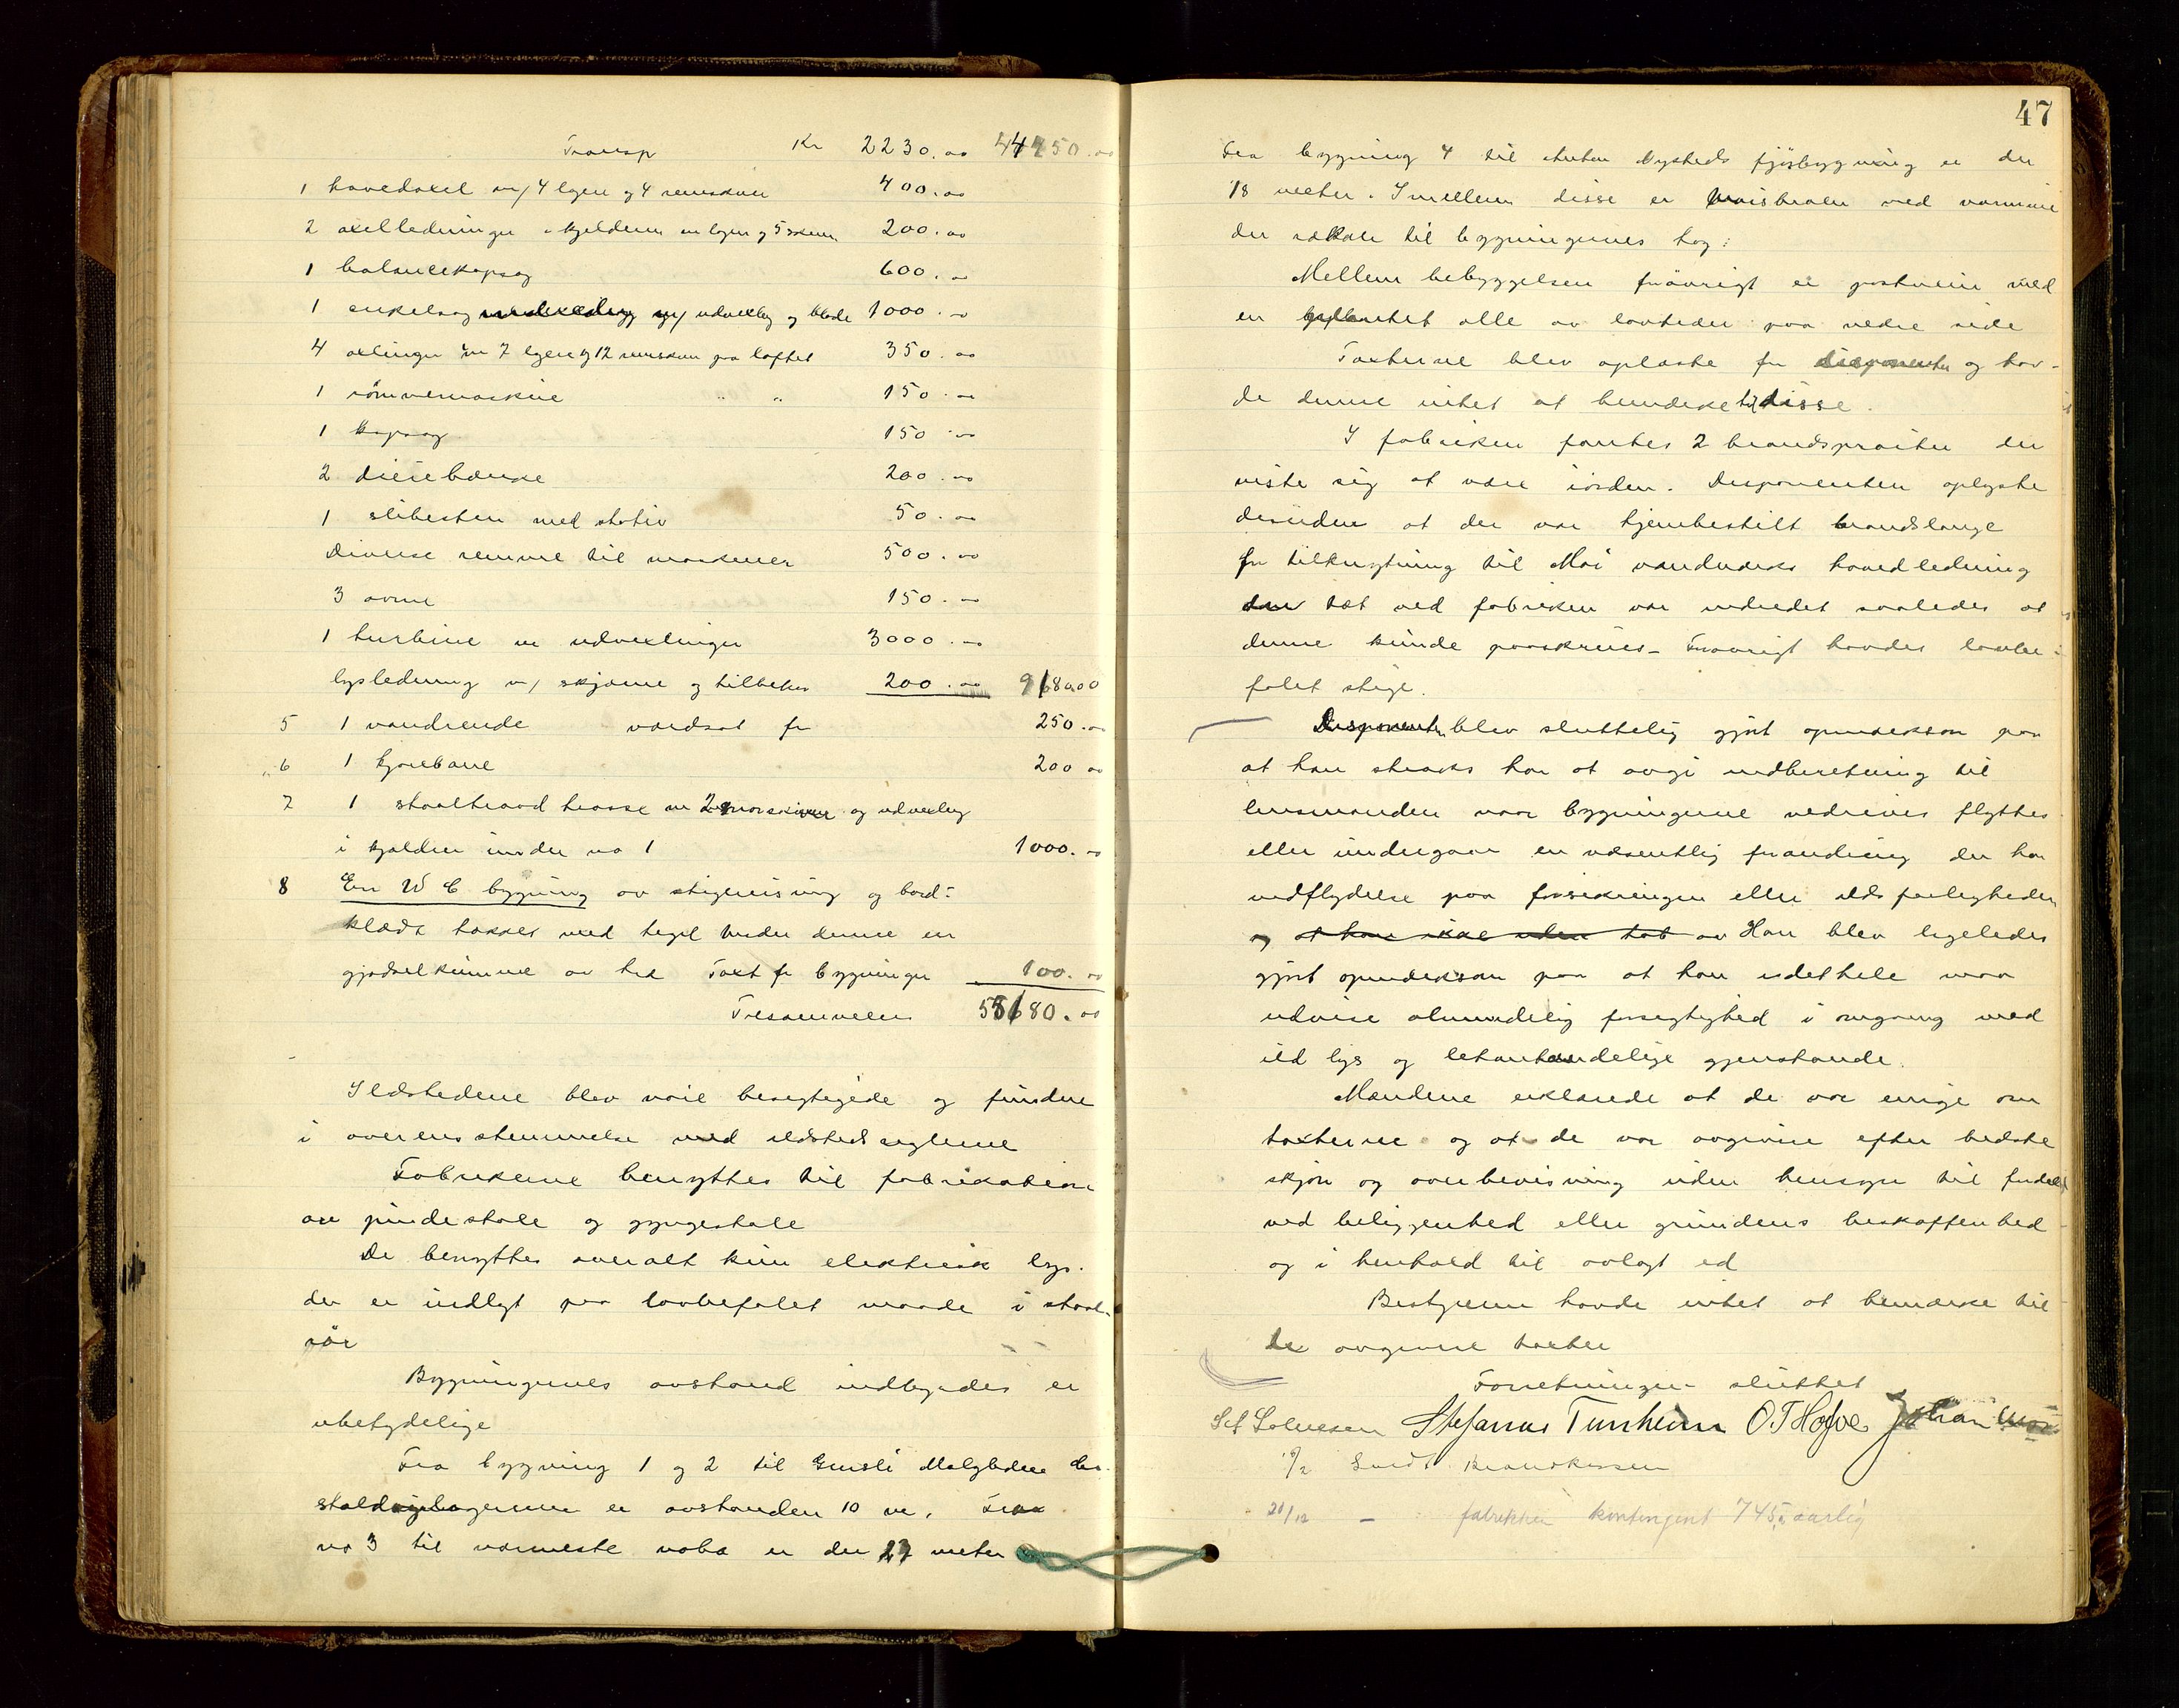 Transp Kr 2230.00 44450.00
1 hovedaxel m/ 4 lgere og 4 remskiver 400.00
2 axelledninger i kjelderen m lagre og 5 skiver 200.00
1 balancekapsag 600.00
1 enkelsag m/ udvexling og blade 1000.00
4 axlinger m 7 lgere og 12 remskiver paa loftet 350.00
1 " " 150.00
1 kapsag 150.00
2 dreiebænke 200.00
1 slibesten med stativ 50.00
Diverse remme til maskiner 500.00
3 ovne 150.00
1 turbine m udvexlinger 3000.00
lysledning m/ skjærme og tilbehør 200.00 9680.00
5 1 vandrende værdsat for 250.00
" 6 1 kjørebane 200 00
7 1 staaltraad trosse m 2 snorskiver og udvexling
i kjælder under no 1 1000.00
8 En W C bygning av stigreisning og bord-
klædt tækket med tegl under denne en
gjødselkumme av Taxt for bygninger 100.00
Tilsammen 55680.00
Ildstedene blev nøie besegtigede og fundne
i overensstemmelse med ildstedsreglerne
Fabrikerne benyttes til fabrikation
av pindestole og gyngestole
De benyttes overalt kun elektrisk lys.
der er indlagt paa lovbefalet maade i staal-
rør
Bygningernes avstand indbyrdes er
ubetydelige
Fra bygning 1 og 2 til
er avstanden 10 m. Fra
no 3 til nærmeste nabo er der 27 meter
47
Fra bygning 4 til Anton Nysteds fjøsbygning er der
18 meter. Imellem disse er ved
der rækker til bygningernes tag.
Mellem bebyggelsen forøvrigt er postveien med
en alle av lovteder paa nedre side
Taxterne blev oplæste for disponenten og hav-
de denne intet at bemærke til disse.
I fabriken fantes 2 brandsprøiter der
viste sig at være iorden. Disponenten oplyste
desuden at der var hjembestilt brandslange
for tilknytning til Moi vandverks hovedledning
der tæt ved fabriken var indredet saaledes at
denne kunde paaskrues – Forøvrigt havdes lovbe-
falet stige.
Disponenten blev sluttelig gjort opmerksom paa
at han straks har at avgi indberetning til
lensmanden naar bygningerne nedrives flyttes
eller undergaar en væsentlig forandring der har
indflydelse paa forsikringen eller ildsfarligheden
og at han ikke uden tab av Han blev ligeledes
gjort opmerksom paa at han idethele maa
udvise almindelig forsigtighed i omgang med
ild lys og letantændelige gjenstande.
Mændene erklærede at de var enige om
taxterne og at de var avgivne efter bedste
skjøn og overbevisning uden hensyn til fordele
ved beliggenhed eller grundens beskaffenhed
og i henhold til avlagt ed
Bestyreren havde intet at bemærke til
de avgivne taxter
Forretningen sluttet
Stefanus Tunheim O.T Hofve Johan
Brandkassen
20/12 – fabrikken kontingent 745 aarlig